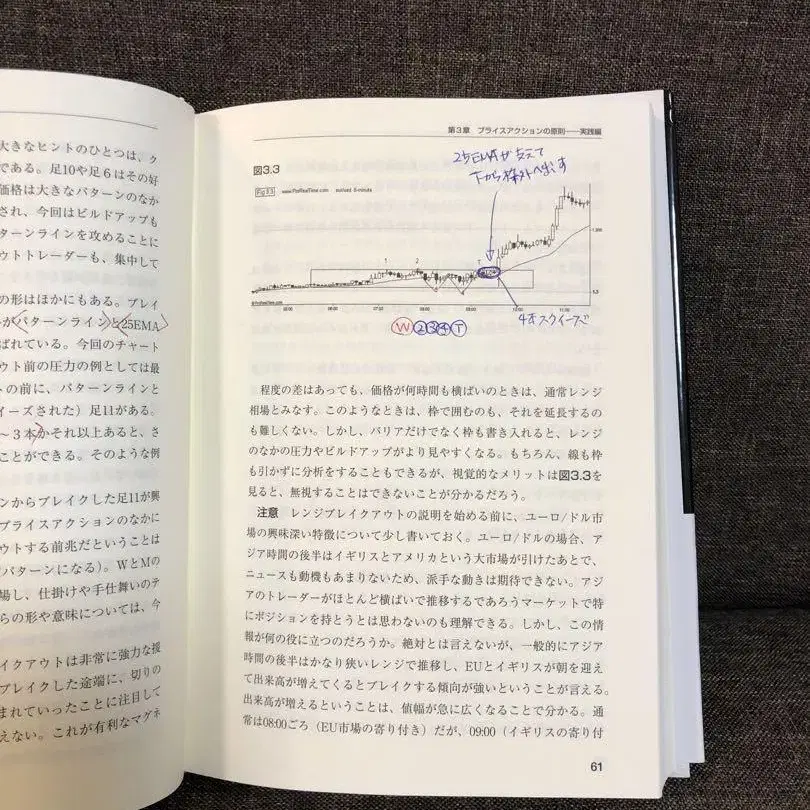 大きなヒントのひとつは、ク
である。足10や足6はその好
価格は大きなパターンのなか
され、今回はビルドアップも
ターンラインを攻めることに
ウトトレーダーも、集中して
の形はほかにもある。ブレイ
が パターンラインと25EMA
ばれている。今回のチャート
ウト前の圧力の例としては最
トの前に、パターンラインと
イーズされた）足11がある。
～3本かそれ以上あると、さ
ことができる。そのような例
ンからブレイクした足11が興
プライスアクションのなかに
ウトする前兆だということは
パターンになる）。WとMの
場し、仕掛けや手仕舞いのテ
らの形や意味については、今
イクアウトは非常に強力な援
ブレイクした途端に、切りの
まれていったことに注目して
えない。これが有利なマグネ
第3章 プライスアクションの原則──実践編
図3.3
25EMAが支えて
下から枠外へ出す
Fig 3.3 www.ProRealTime.com eur/usd 5-minute
1 2 T
©ProRealTime.com
05:00 06:00 07:00 08:00 09:00 10:00 11:00
W 2 3 4 T
スクイーズ
程度の差はあっても、価格が何時間も横ばいのときは、通常レンジ
相場とみなす。このようなときは、枠で囲むのも、それを延長するの
も難しくない。しかし、バリアだけでなく枠も書き入れると、レンジ
のなかの圧力やビルドアップがより見やすくなる。もちろん、線も枠
も引かずに分析をすることもできるが、視覚的なメリットは図3.3を
見ると、無視することはできないことが分かるだろう。
注意 レンジブレイクアウトの説明を始める前に、ユーロ/ドル市
場の興味深い特徴について少し書いておく。ユーロ/ドルの場合、ア
ジア時間の後半はイギリスとアメリカという大市場が引けたあとで、
ニュースも動機もあまりないため、派手な動きは期待できない。アジ
アのトレーダーがほとんど横ばいで推移するであろうマーケットで特
にポジションを持とうとは思わないのも理解できる。しかし、この情
報が何の役に立つのだろうか。絶対とは言えないが、一般的にアジア
時間の後半はかなり狭いレンジで推移し、EUとイギリスが朝を迎え
て出来高が増えてくるとブレイクする傾向が強いということが言える。
出来高が増えるということは、値幅が急に広くなることで分かる。通
常は08:00ごろ（EU市場の寄り付き）だが、09:00（イギリスの寄り付
61